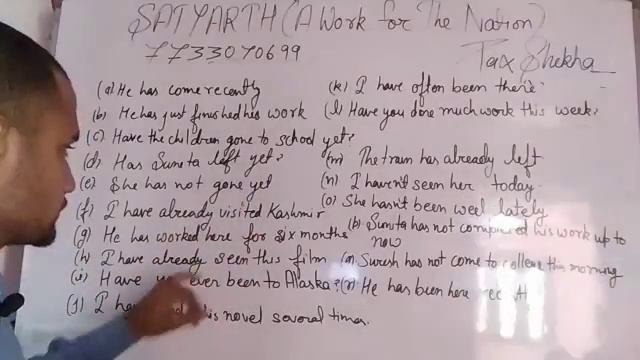 SATYARTH (A Work for The Nation)
7733070699
Tax Shekha
(a) He has come recently
(b) He has just finished his work
(c) Have the children gone to school yet?
(d) Has Sunita left yet?
(e) She has not gone yet
(f) I have already visited Kashmir
(g) He has worked here for six months
(h) I have already seen this film
(i) Have ever been to Alaska?
(j) I novel several times.
(k) I have often been there.
(l) Have you done much work this week?
(m) The train has already left
(n) I haven't seen her today.
(o) She hasn't been well lately
(p) Sunita has not completed his work up to
now
(q) Suresh has not come to college this morning
(r) He has been here